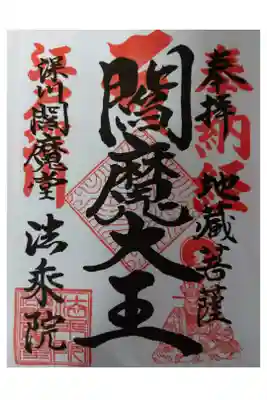 奉拝 地蔵菩薩
閻魔大王
深川閻魔堂 法乗院